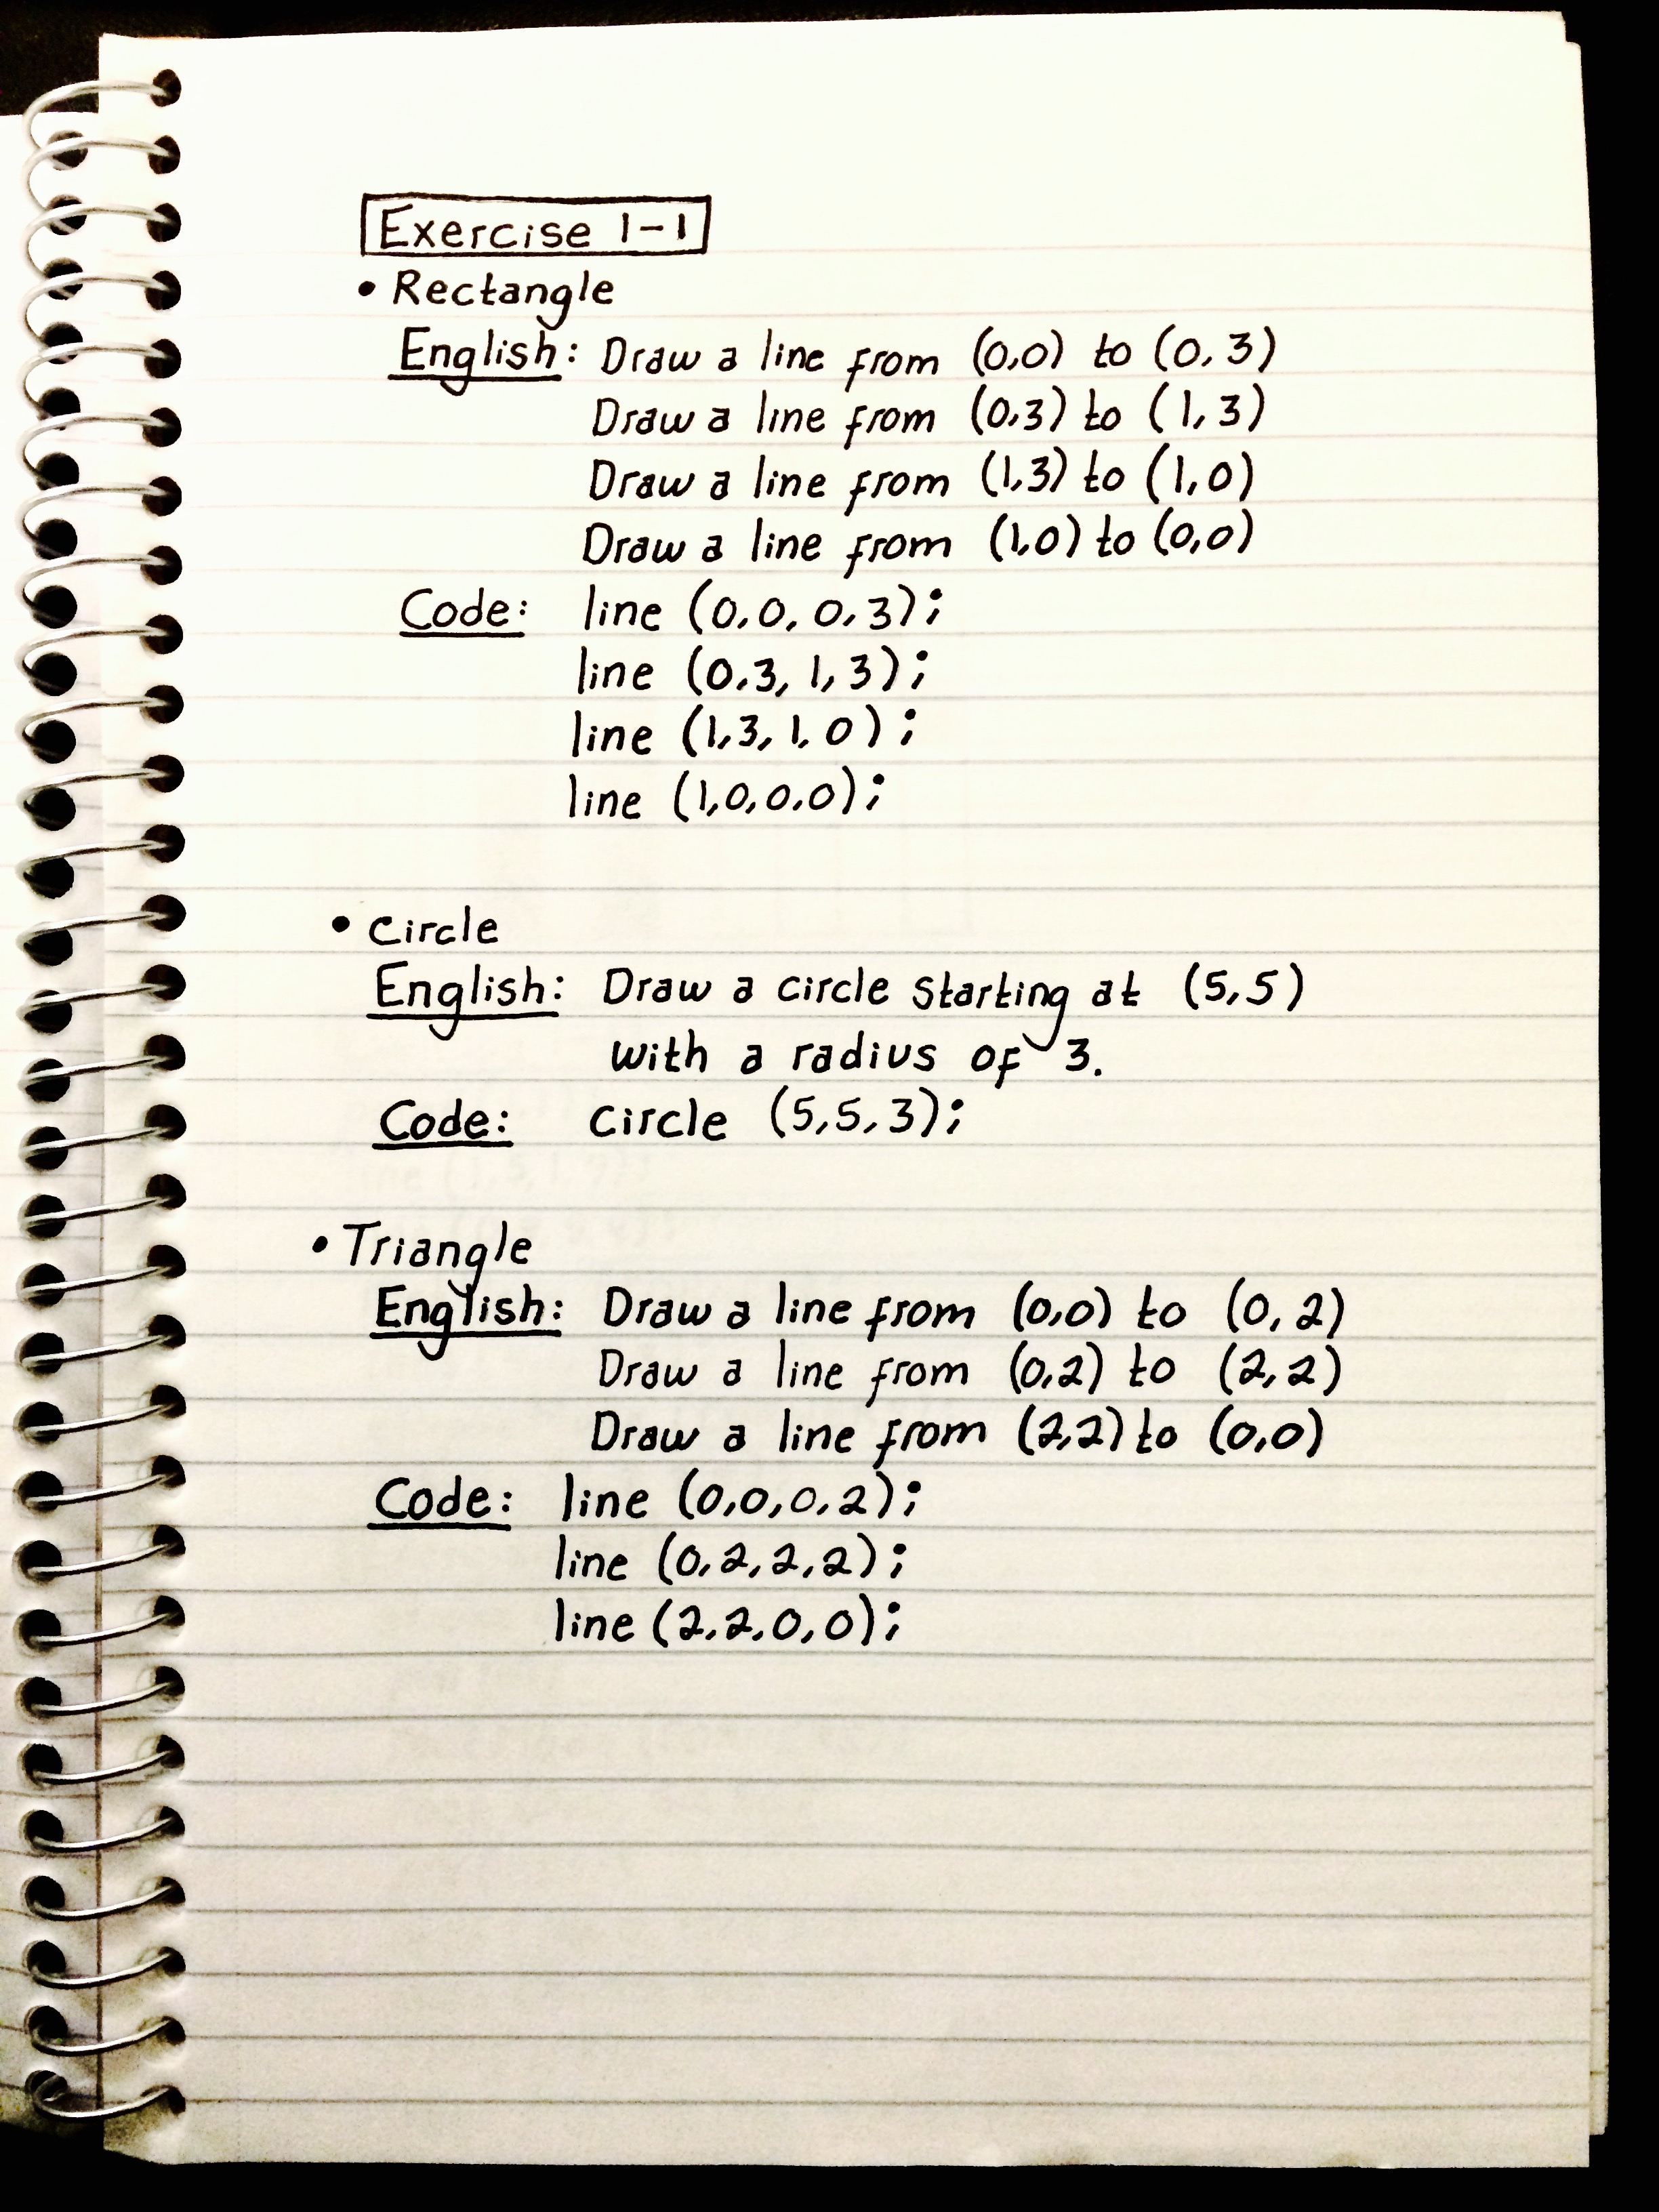 Exercise 1-1
• Rectangle
English: Draw a line from (0,0) to (0,3)
Draw a line from (0,3) to (1,3)
Draw a line from (1,3) to (1,0)
Draw a line from (1,0) to (0,0)
Code: line (0,0,0,3);
line (0,3,1,3);
line (1,3,1,0);
line (1,0,0,0);
• Circle
English: Draw a circle starting at (5,5)
with a radius of 3.
Code: circle (5,5,3);
• Triangle
English: Draw a line from (0,0) to (0,2)
Draw a line from (0,2) to (2,2)
Draw a line from (2,2) to (0,0)
Code: line (0,0,0,2);
line (0,2,2,2);
line (2,2,0,0);